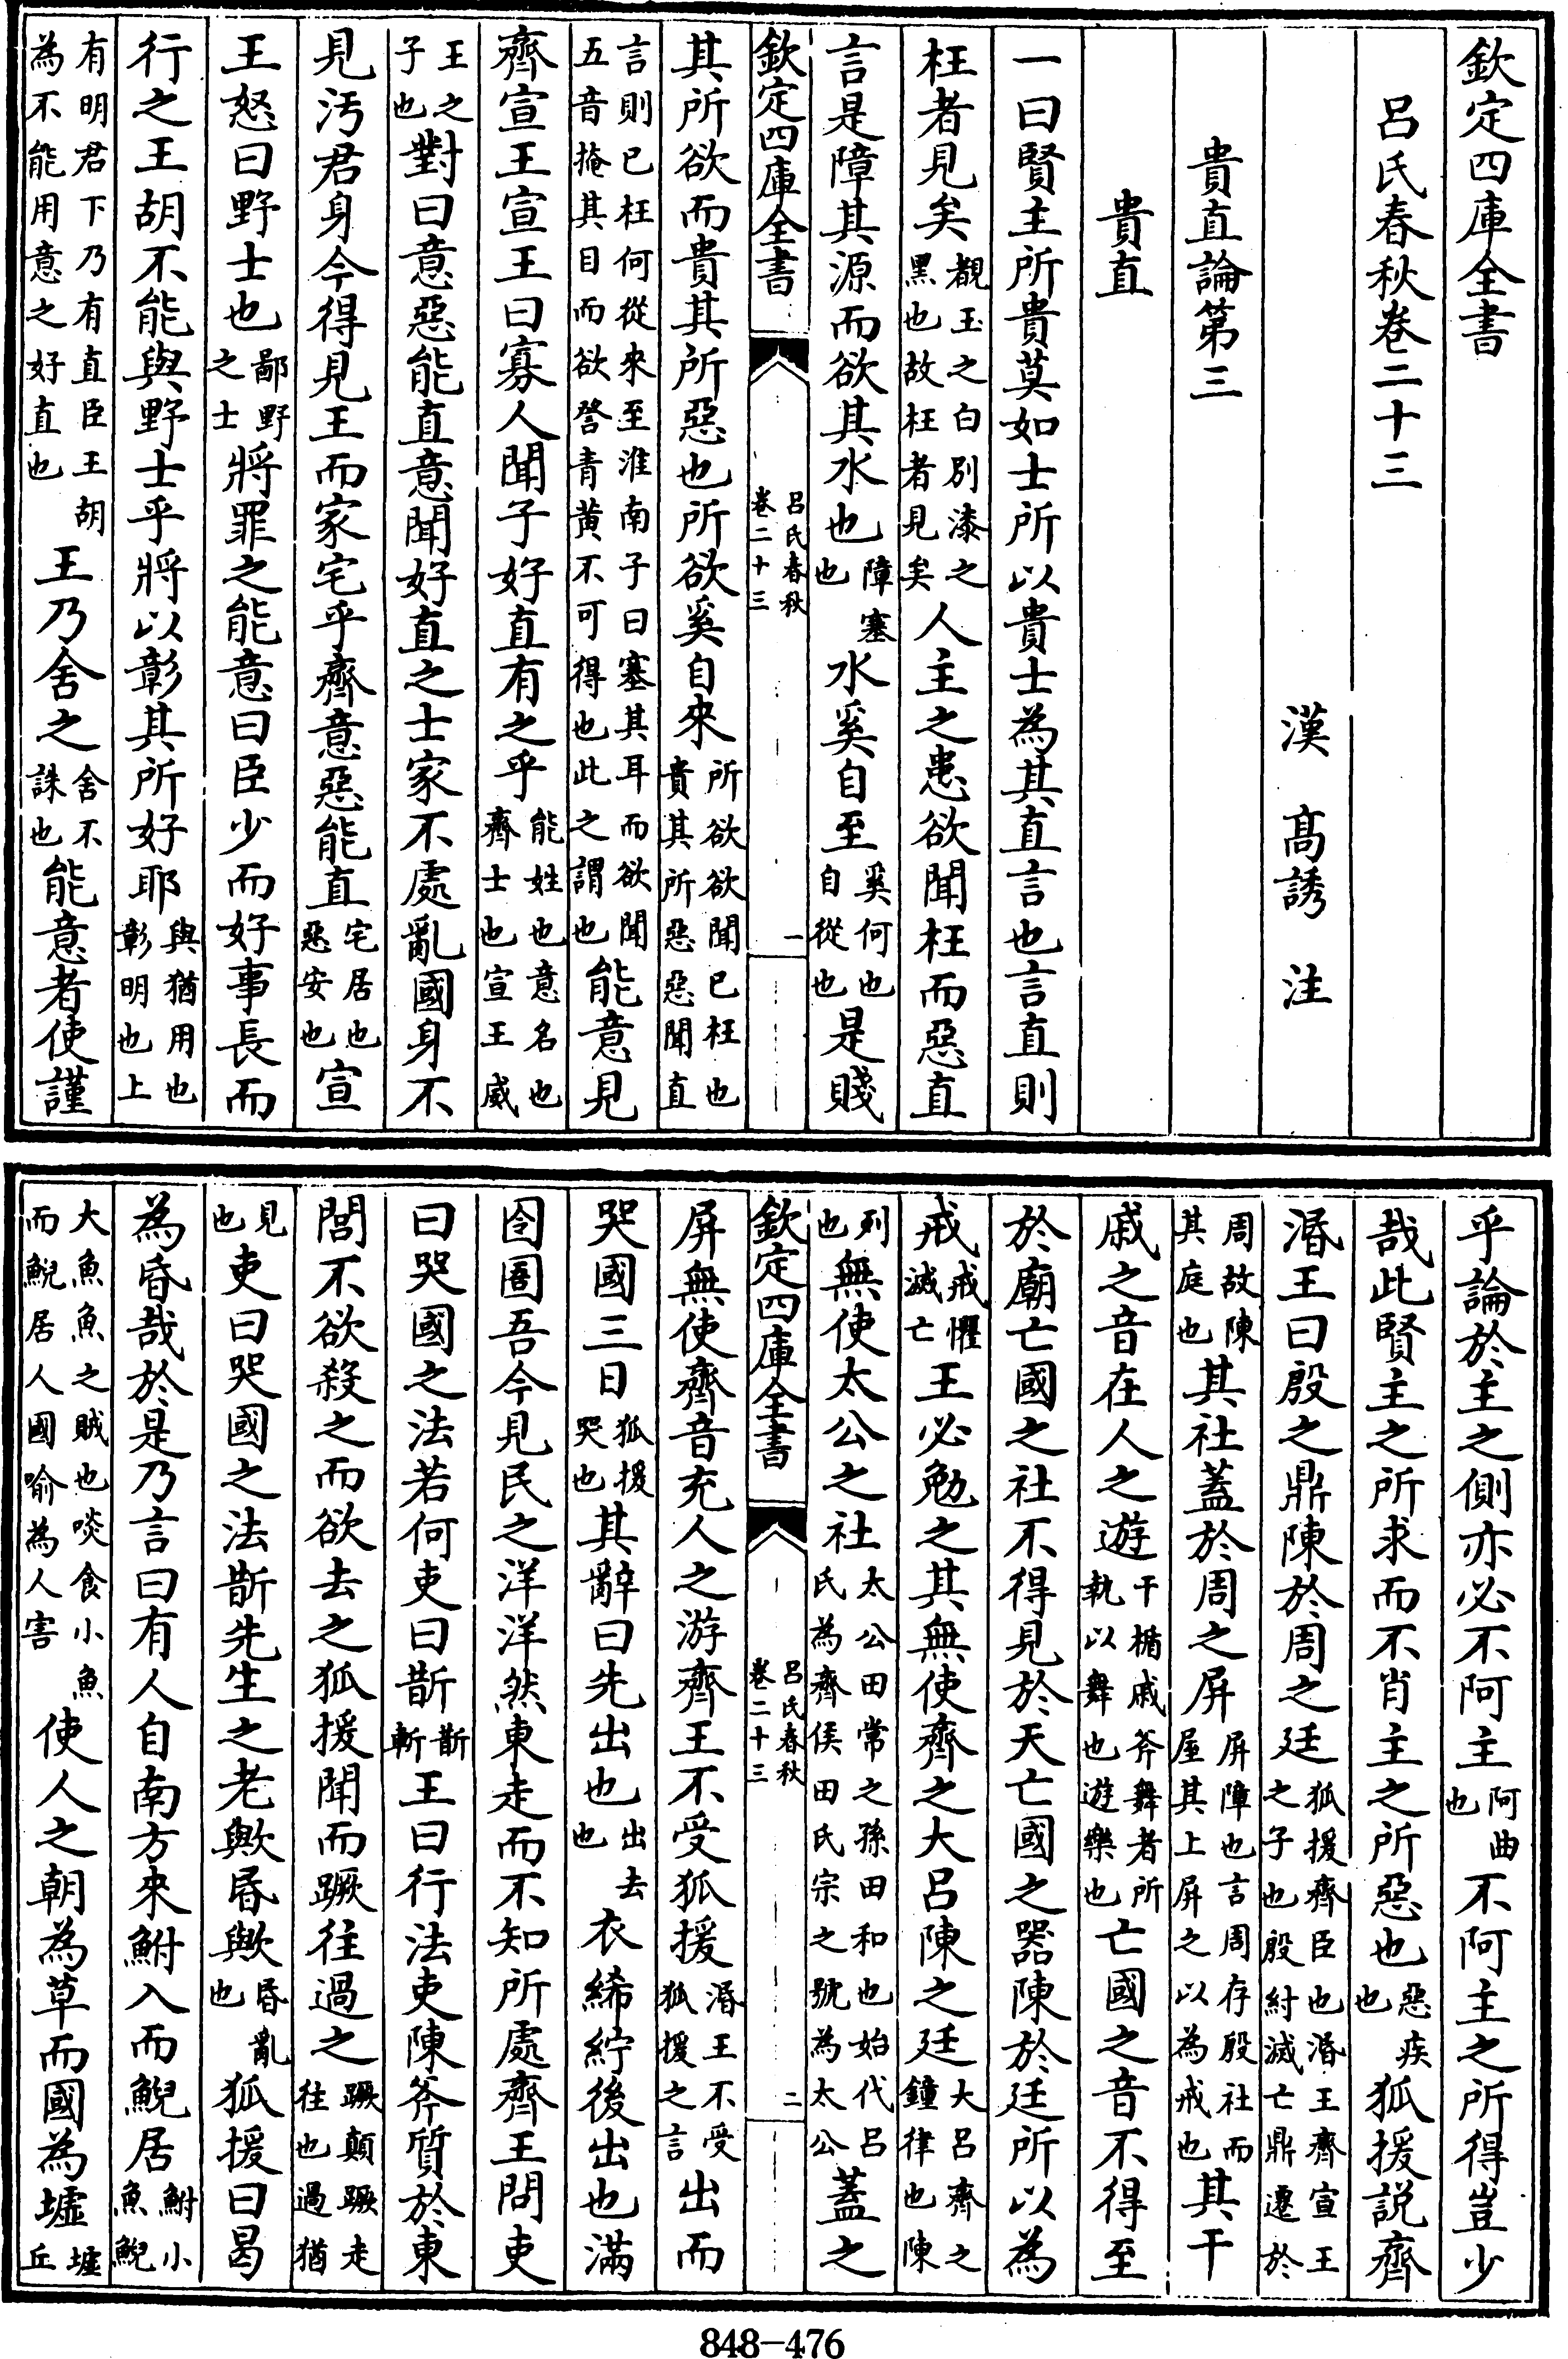 欽定四庫全書
呂氏春秋卷二十三
漢 高誘 注
貴直論第三
貴直
一曰賢主所貴莫如士所以貴士為其直言也言直則
枉者見矣覩玉之白別漆之黑也故枉者見矣人主之患欲聞枉而惡直
言是障其源而欲其水也障塞也水奚自至奚何也自從也是賤
欽定四庫全書 呂氏春秋卷二十三 一
其所欲而貴其所惡也所欲奚自來所欲欲聞已枉也貴其所惡惡聞直
言則已枉何從來至淮南子曰塞其耳而欲聞五音掩其目而欲詧青黃不可得也此之謂也能意見
齊宣王宣王曰寡人聞子好直有之乎能姓也意名也齊士也宣王威
王之子也對曰意惡能直意聞好直之士家不處亂國身不
見汚君身今得見王而家宅乎齊意惡能直宅居也惡安也宣
王怒曰野士也鄙野之士將罪之能意曰臣少而好事長而
行之王胡不能與野士乎將以彰其所好耶與猶用也彰明也上
有明君下乃有直臣王胡為不能用意之好直也王乃舍之舍不誅也能意者使謹
乎論於主之側亦必不阿主阿曲也不阿主之所得豈少
哉此賢主之所求而不肖主之所惡也惡疾也狐援説齊
湣王曰殷之鼎陳於周之廷狐援齊臣也湣王齊宣王之子也殷紂滅亡鼎遷於
周故陳其庭也其社蓋於周之屏屏障也言周存殷社而屋其上屏之以為戒也其干
戚之音在人之遊干楯戚斧舞者所執以舞也遊樂也亡國之音不得至
於廟亡國之社不得見於天亡國之器陳於廷所以為
戒戒懼滅亡王必勉之其無使齊之大呂陳之廷大呂齊之鐘律也陳
列也無使太公之社太公田常之孫田和也始代呂氏為齊侯田氏宗之號為太公蓋之
欽定四庫全書 呂氏春秋卷二十三 二
屏無使齊音充人之游齊王不受狐援湣王不受狐援之言出而
哭國三日狐援哭也其辭曰先出也出去也衣絺紵後出也滿
囹圄吾今見民之洋洋然東走而不知所處齊王問吏
曰哭國之法若何吏曰斮斮斬王曰行法吏陳斧質於東
閭不欲殺之而欲去之狐援聞而蹶往過之蹶顛蹶走往也過猶
見也吏曰哭國之法斮先生之老歟昬歟昬亂也狐援曰曷
為昏哉於是乃言曰有人自南方來鮒入而鯢居鮒小魚鯢
大魚魚之賊也啖食小魚而鯢居人國喻為人害使人之朝為草而國為墟墟丘
848-476